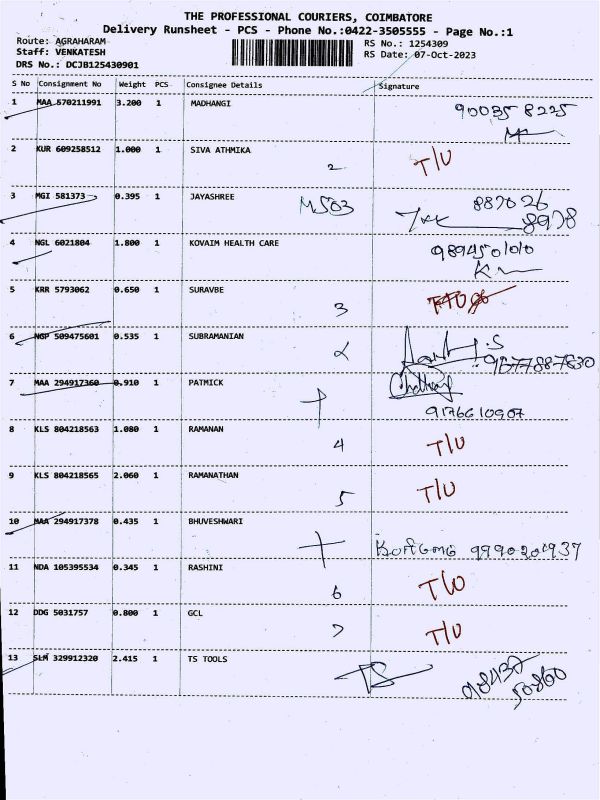 THE PROFESSIONAL COURIERS, COIMBATORE
Delivery Runsheet - PCS - Phone No.:0422-3505555 - Page No.:1
Route: AGRAHARAM
RS No.: 1254309
Staff: VENKATESH
RS Date: 07-Oct-2023
DRS No.: DCJB125430901
S No Consignment No Weight PCS Consignee Details Signature
1 MAA 570211991 3.200 1 MADHANGI 90035 8225
2 KUR 609258512 1.000 1 SIVA ATHMIKA 2 T/U
3 MGI 581373 0.395 1 JAYASHREE MS03 887026
8978
4 NGL 6021804 1.800 1 KOVAIM HEALTH CARE 9894501010
5 KRR 5793062 0.650 1 SURAVBE 3
6 NGP 509475601 0.535 1 SUBRAMANIAN
7 MAA 294917360 0.910 1 PATMICK
9176610907
8 KLS 804218563 1.080 1 RAMANAN 4 T/U
9 KLS 804218565 2.060 1 RAMANATHAN 5 T/U
10 MAA 294917378 0.435 1 BHUVESHWARI
11 NDA 105395534 0.345 1 RASHINI 6 T/U
12 DDG 5031757 0.800 1 GCL 7 T/U
13 SLM 329912320 2.415 1 TS TOOLS TS 98437
50860